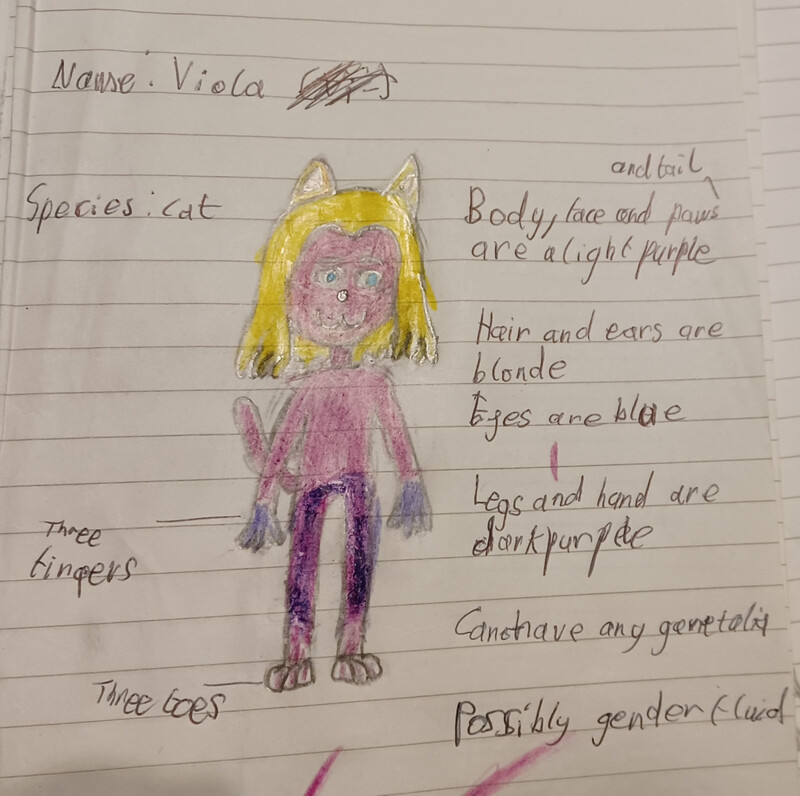 Name: Viola
Species: cat
and tail
Body, face and paws
are a light purple
Hair and ears are
blonde
Eyes are blue
Legs and hand are
dark purple
Three
fingers
Can have any genetalia
Three toes
Possibly genderfluid